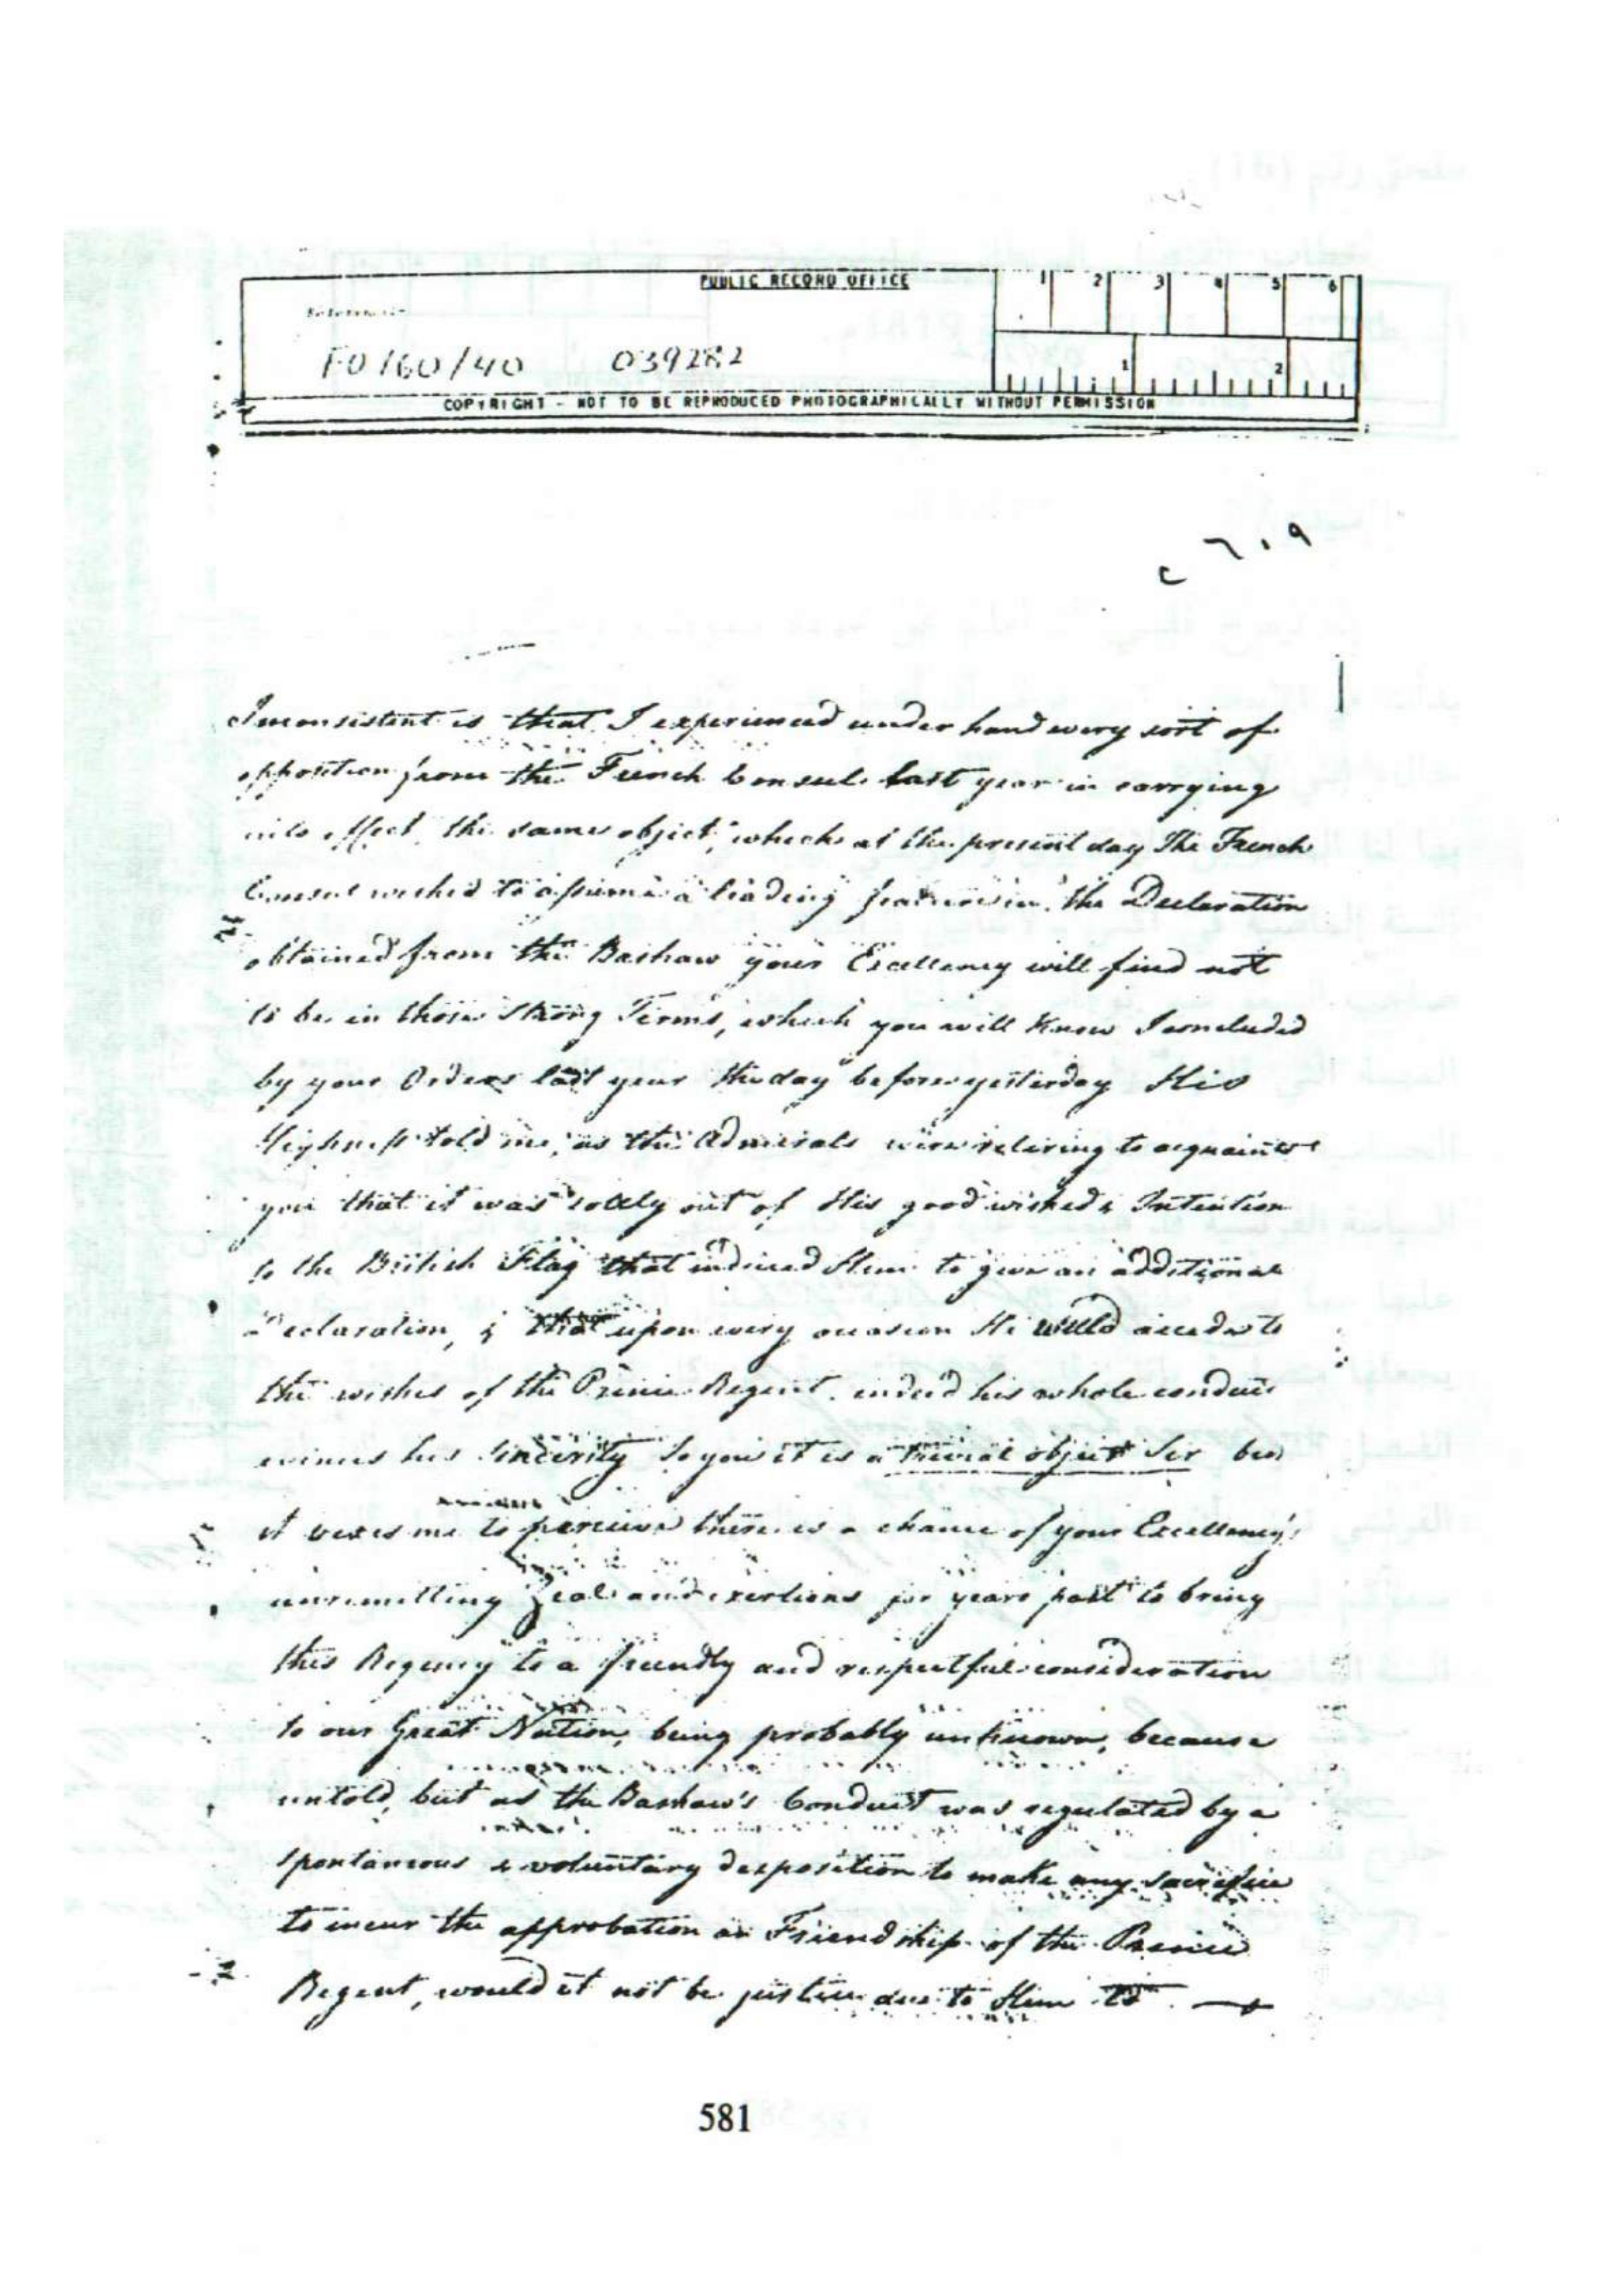 PUBLIC RECORD OFFICE
1 2 3 4 5 6
Reference:-
FO 160/40 039282
1 2
COPYRIGHT - NOT TO BE REPRODUCED PHOTOGRAPHICALLY WITHOUT PERMISSION
Inconsistent is that I experienced under hand every sort of
opposition from the French Consul last year in carrying
into effect the same object, which at the present day The French
Consul wished to assume a leading feature in. the Declaration
obtained from the Bashaw your Excellency will find not
to be in those strong Terms, which you will Know I concluded
by your Orders last year the day before yesterday His
Highness told me, as the Admirals were retiring to acquaint
you that it was solely out of His good wished & Intention
to the British Flag that induced Him to give an additional
Declaration, & that upon every occasion He would accede to
the wishes of the Prince Regent. indeed his whole conduct
evinces his Sincerity to you it is a trivial object Sir but
it vexes me to perceive there is a chance of your Excellency's
unremitting Zeal and exertions for years past to bring
this Regency to a friendly and respectful consideration
to our Great Nation, being probably unknown, because
untold, but as the Bashaw's Conduct was regulated by a
spontaneous & voluntary disposition to make any sacrifice
to incur the approbation or Friendship of the Prince
Regent, would it not be justice due to Him to
581